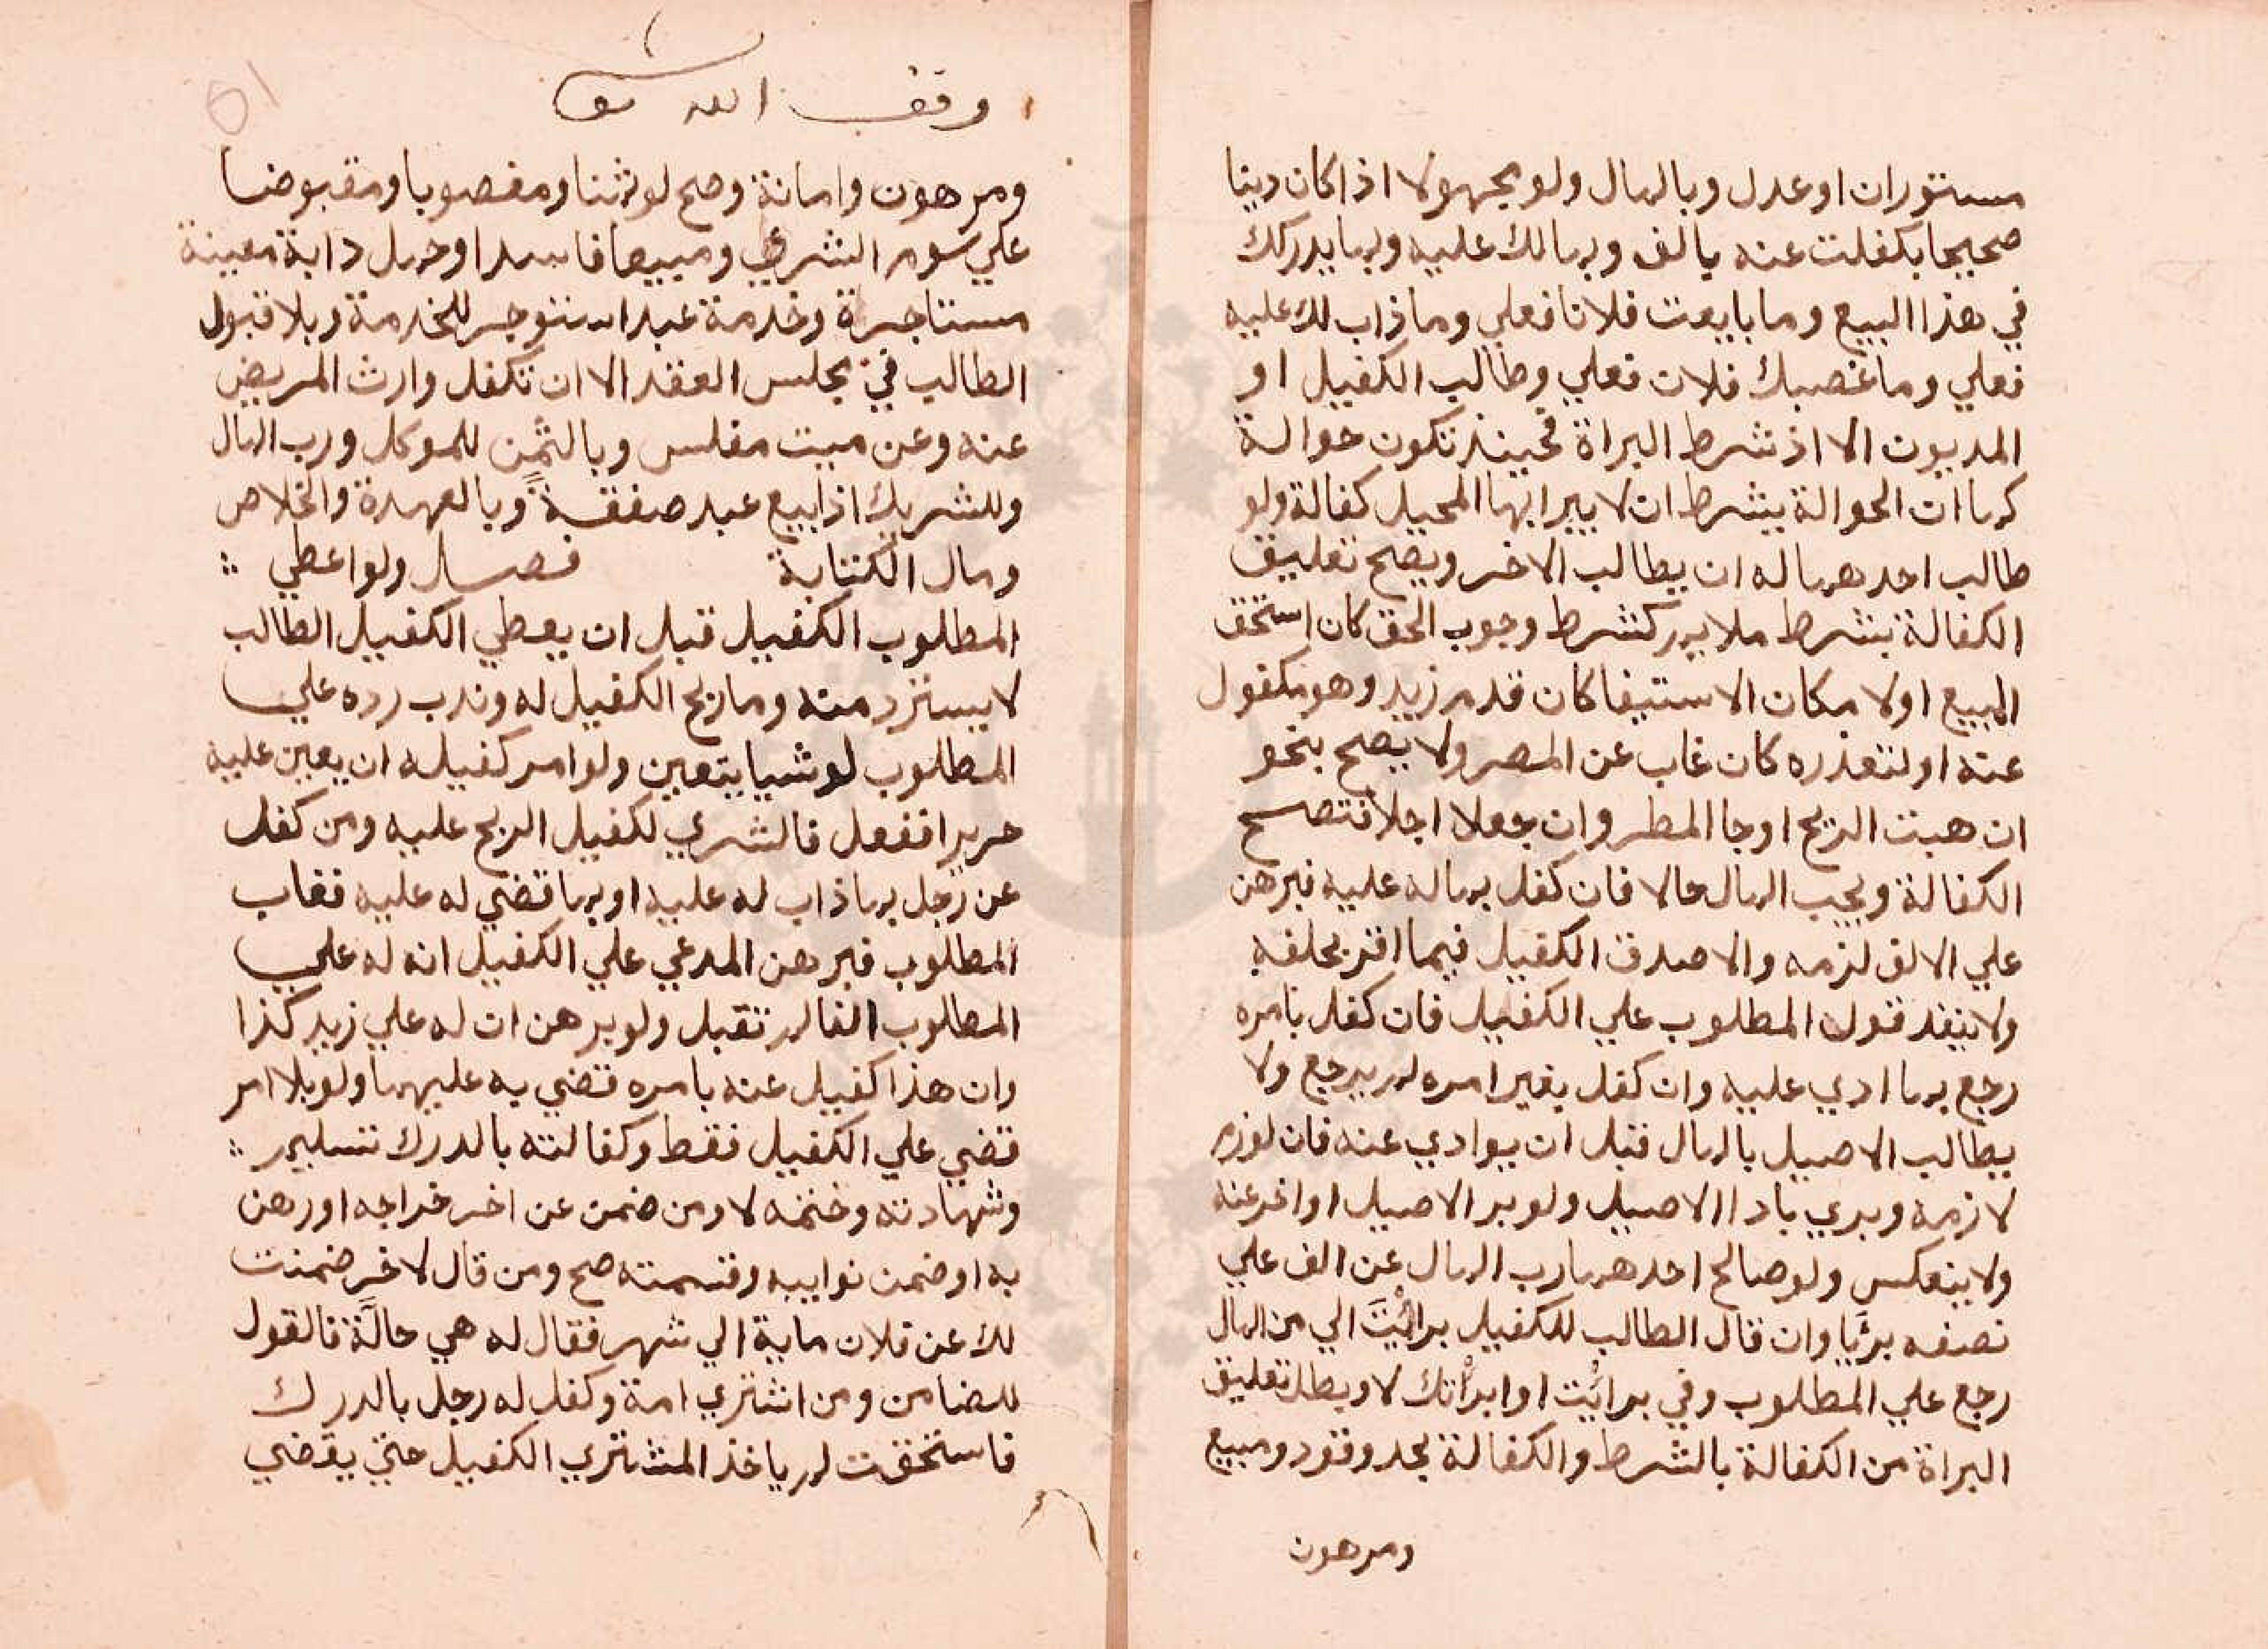 مستوران او عدل وبالمال ولو مجهولا اذا كان دينا
صحيحا بكفلت عنه بالف وبمالك عليه وبما يدركك
في هذا البيع وما بايعت فلانا فعلي وما ذاب لك عليه
فعلي وما غصبك فلان فعلي وطالب الكفيل او
المديون الا اذ شرط البراة فحينئذ تكون حوالة
كما ان الحوالة بشرط ان لا يبرا بها المحيل كفالة ولو
طالب احدهما له ان يطالب الاخر ويصح تعليق
الكفالة بشرط ملايم كشرط وجوب الحق كان استحق
المبيع او لامكان الاستيفا كان قدم زيد وهو مكفول
عنه او لتعذره كان غاب عن المصر ولا يصح بنحو
ان هبت الريح او جا المطر وان جعلا اجلا فتصح
الكفالة ويجب المال حالا فان كفل بماله عليه فبرهن
علي الالف لزمه والا صدق الكفيل فيما اقر بحلفه
ولا ينفذ قول المطلوب علي الكفيل فان كفل بامره
رجع بما ادي عليه وان كفل بغير امره لم يرجع ولا
يطالب الاصيل بالمال قبل ان يوادي عنه فان لوزم
لازمه وبري باداالاصيل ولو برا الاصيل او اخر عنه
ولا ينعكس ولو صالح احدهما رب المال عن الف علي
نصفه بريا وان قال الطالب للكفيل برائت الي من المال
رجع علي المطلوب وفي برائت او ابراتك لا وبطل تعليق
البراة من الكفالة بالشرط والكفالة بحد وقود ومبيع
ومرهون
وقف الله
ومرهون وامانة وصح لو ثمنا ومغصوبا ومقبوضا
علي سوم الشري ومبيعا فاسدا وحمل دابة معينة
مستاجرة وخدمة عبد استوجر للخدمة وبلا قبول
الطالب في مجلس العقد الا ان تكفل وارث المريض
عنه وعن ميت مفلس وبالثمن للموكل ورب المال
وللشريك اذا بيع عبد صفقة وبالعهدة والخلاص
ومال الكتابة فصل ولو اعطي
المطلوب الكفيل قبل ان يعطي الكفيل الطالب
لا يسترد منه وما ربح الكفيل له وندب رده علي
المطلوب لو شيا يتعين ولو امر كفيله ان يعين عليه
حريرا ففعل فالشري لكفيل الربح عليه ومن كفل
عن رجل بما ذاب له عليه او بما قضي له عليه فغاب
المطلوب فبرهن المدعي علي الكفيل انه له علي
المطلوب الفا لم تقبل ولو برهن ان له علي زيد كذا
وان هذا كفيل عنه بامره قضي به عليهما ولو بلا امر
قضي علي الكفيل فقط وكفالته بالدرك تسليم
وشهادته وختمه لا ومن ضمن عن اخر خراجه او رهن
به او ضمن نوايبه وقسمته صح ومن قال لاخر ضمنت
لك عن فلان ماية الي شهر فقال له هي حالة فالقول
للضامن ومن اشتري امة وكفل له رجل بالدرك
فاستحقت لم ياخذ المشتري الكفيل حتي يقضي